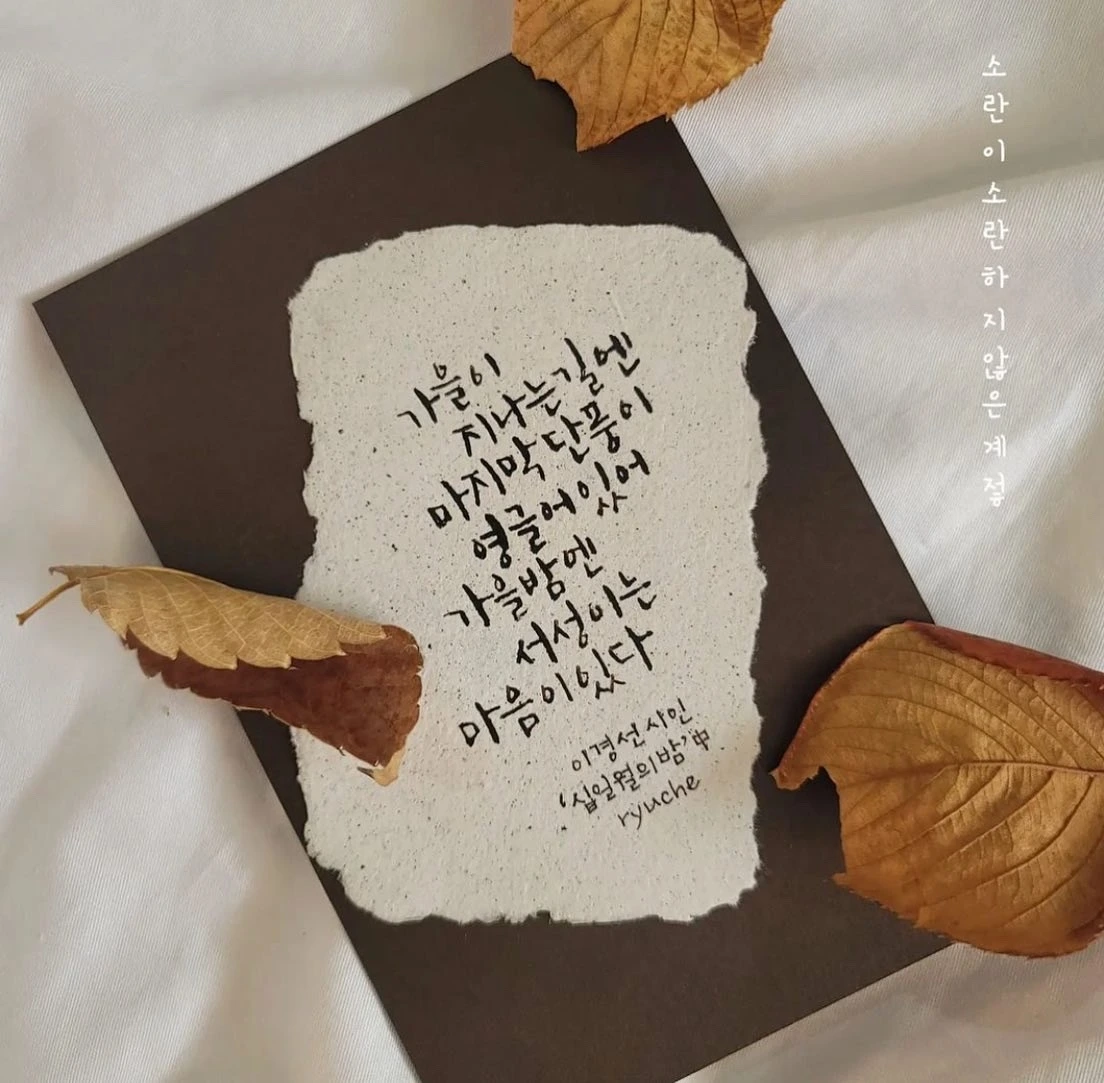 가을이
지나는 길엔
마지막 단풍이
영글어 있어
가을밤엔
서성이는
마음이 있다
이경선 시인
'십일월의 밤' 中
ryuche
소란이소란하지않은계절